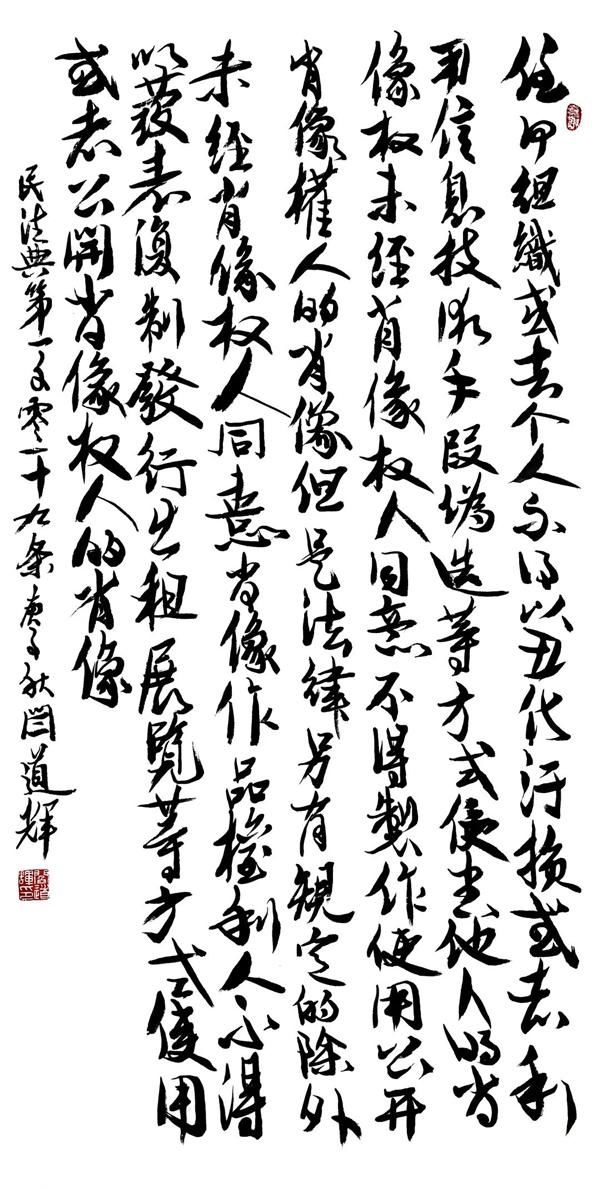 任何组織或者个人不得以丑化汙损或者利
用信息技術手段偽造等方式侵害他人的肖
像权未经肖像权人同意不得製作使用公开
肖像權人的肖像但是法律另有規定的除外
未經肖像权人同意肖像作品權利人不得
以發表復制發行出租展覽等方式使用
或者公開肖像权人的肖像
民法典第一千零一十九条庚子秋閆道輝